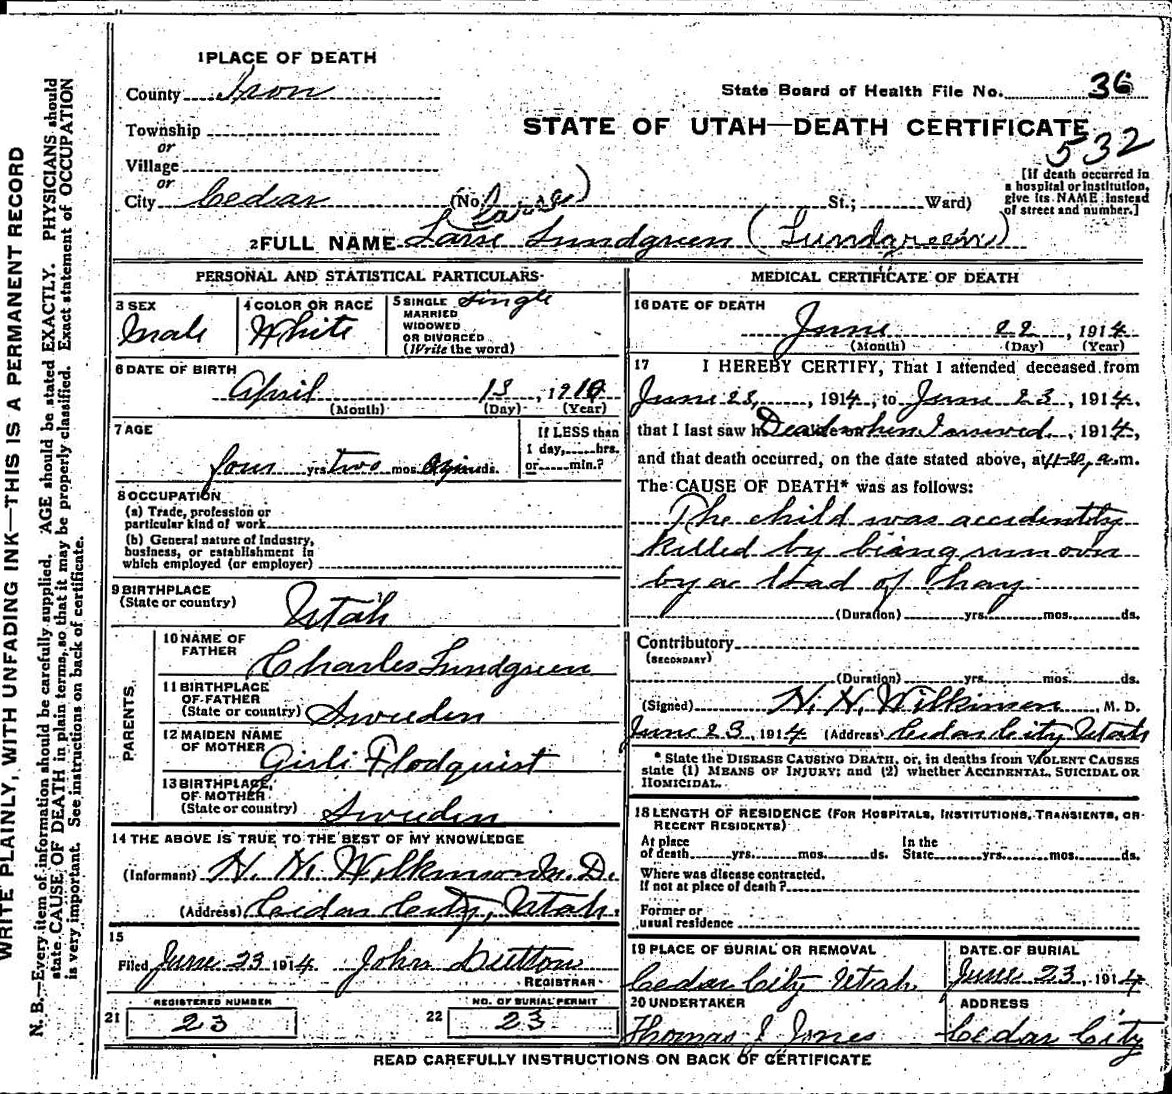 WRITE PLAINLY, WITH UNFADING INK—THIS IS A PERMANENT RECORD
N. B.—Every item of information should be carefully supplied. AGE should be stated EXACTLY. PHYSICIANS should
state CAUSE OF DEATH in plain terms, so that it may be properly classified. Exact statement of OCCUPATION
is very important. See instructions on back of certificate.
1 PLACE OF DEATH
County Iron
State Board of Health File No. 36
Township
or
STATE OF UTAH—DEATH CERTIFICATE
532
Village
or
City Cedar (No. St.; Ward)
[If death occurred in
a hospital or institution,
give its NAME instead
of street and number.]
2 FULL NAME Lundgren (Lundgreen)
PERSONAL AND STATISTICAL PARTICULARS
3 SEX
Male
4 COLOR OR RACE
White
5 SINGLE single
MARRIED
WIDOWED
OR DIVORCED
(Write the word)
6 DATE OF BIRTH
April 13, 1910
(Month) (Day) (Year)
7 AGE
four yrs. two mos. ds.
If LESS than
1 day, hrs.
or min.?
8 OCCUPATION
(a) Trade, profession or
particular kind of work
(b) General nature of industry,
business, or establishment in
which employed (or employer)
9 BIRTHPLACE
(State or country)
Utah
PARENTS
10 NAME OF
FATHER
Charles Lundgren
11 BIRTHPLACE
OF FATHER
(State or country) Sweden
12 MAIDEN NAME
OF MOTHER
Flodquist
13 BIRTHPLACE
OF MOTHER
(State or country) Sweden
14 THE ABOVE IS TRUE TO THE BEST OF MY KNOWLEDGE
(Informant) H. H. Wilkinson M. D.
(Address) Cedar City, Utah.
15
Filed June 23 1914 John Dutton
REGISTRAR
21 REGISTERED NUMBER
23
22 NO. OF BURIAL PERMIT
23
MEDICAL CERTIFICATE OF DEATH
16 DATE OF DEATH
June 22, 1914
(Month) (Day) (Year)
17 I HEREBY CERTIFY, That I attended deceased from
June 23, 1914, to June 23, 1914,
that I last saw h Dead when I arrived, 1914,
and that death occurred, on the date stated above, at a.m.
The CAUSE OF DEATH* was as follows:
The child was accidently
killed by being run over
by a load of hay
(Duration) yrs. mos. ds.
Contributory
(SECONDARY)
(Duration) yrs. mos. ds.
(Signed) H. H. Wilkinson, M. D.
June 23, 1914 (Address) Cedar City Utah
* State the DISEASE CAUSING DEATH, or, in deaths from VIOLENT CAUSES
state (1) MEANS OF INJURY; and (2) whether ACCIDENTAL, SUICIDAL OR
HOMICIDAL.
18 LENGTH OF RESIDENCE (FOR HOSPITALS, INSTITUTIONS, TRANSIENTS, OR
RECENT RESIDENTS)
At place In the
of death yrs. mos. ds. State yrs. mos. ds.
Where was disease contracted,
if not at place of death?
Former or
usual residence
19 PLACE OF BURIAL OR REMOVAL
Cedar City Utah
DATE OF BURIAL
June 23, 1914
20 UNDERTAKER
Thomas J Jones
ADDRESS
Cedar City
READ CAREFULLY INSTRUCTIONS ON BACK OF CERTIFICATE